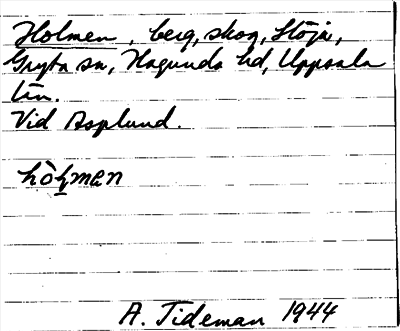 Holmen, berg, skog, Höja,
Gryta sn, Hagunda hd, Uppsala
län.
Vid Asplund.
hòḥmen
A. Tideman 1944